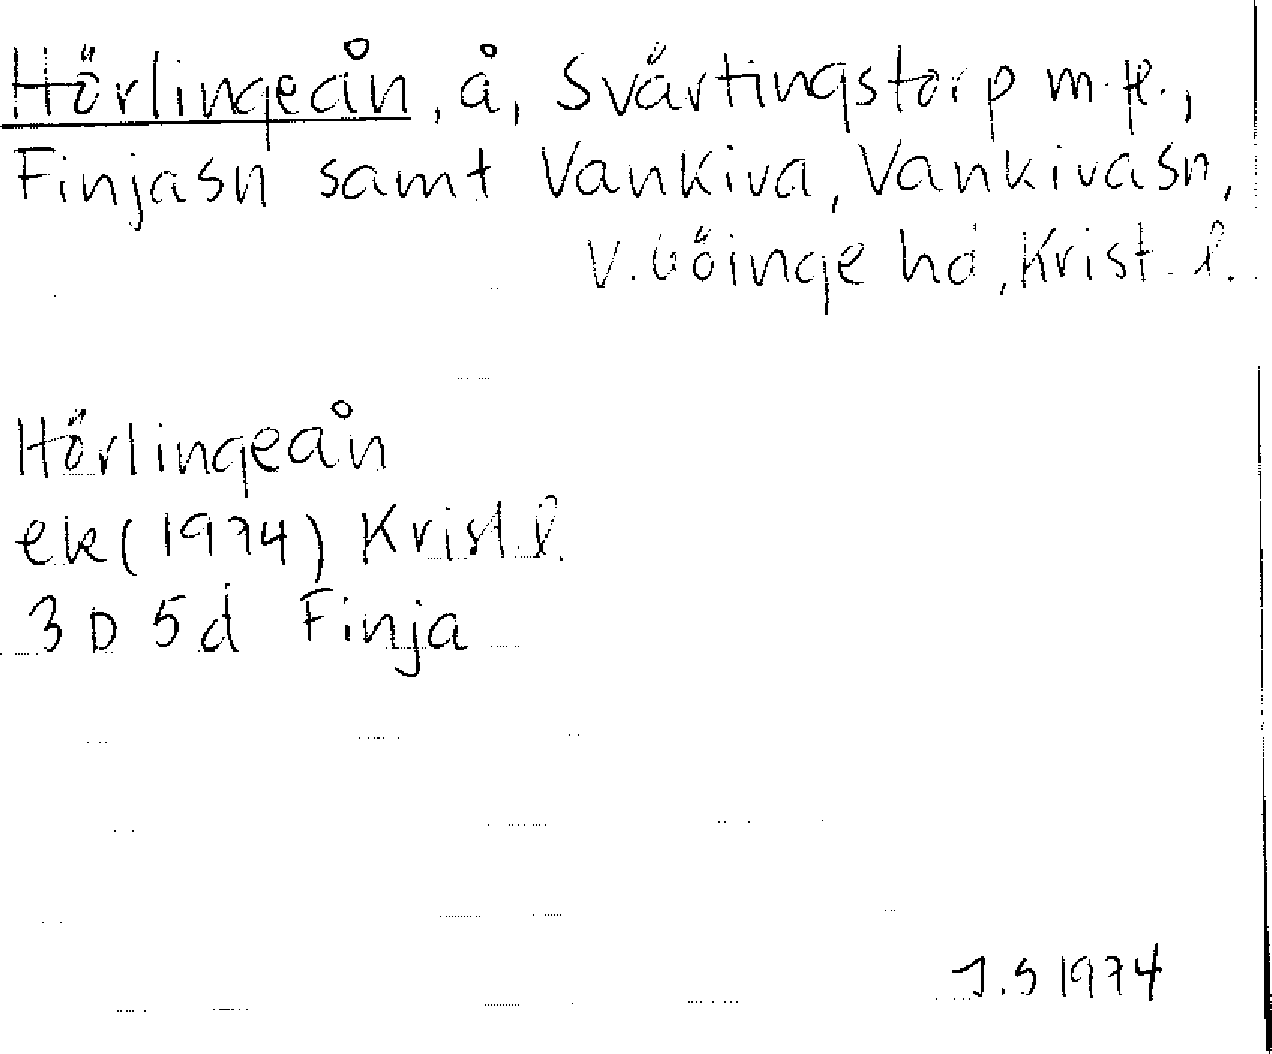 Hörlingeån, å, Svärtingstorp m.fl.,
Finjasn samt Vankiva, Vankivasn,
V. Göinge hd, Krist. l.
Hörlingeån
ek (1974) Krist. l.
3 D 5d Finja
J.S 1974